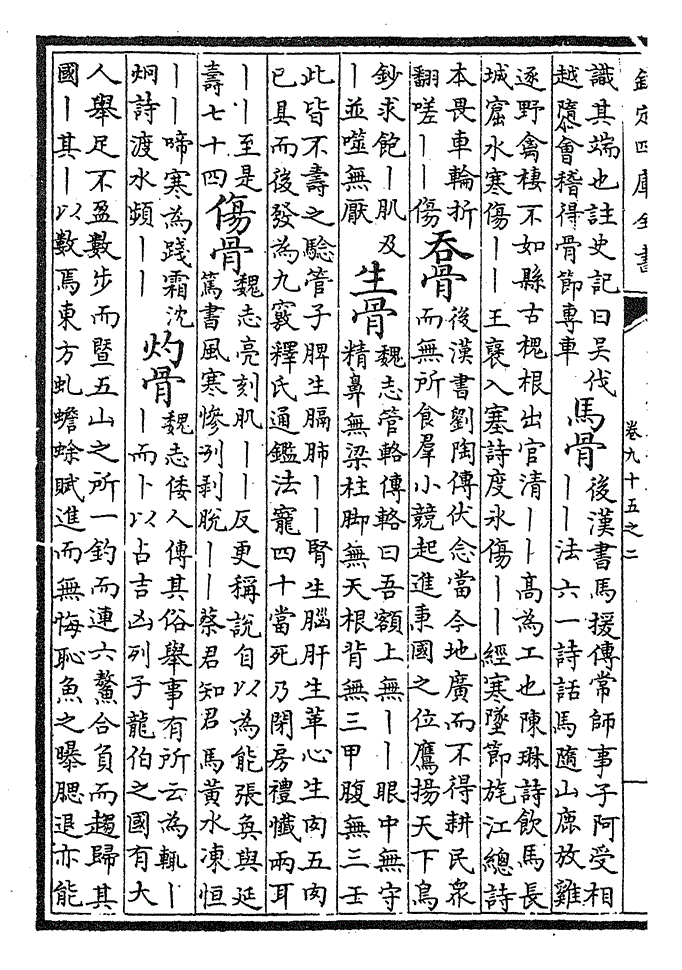 欽定四庫全書
卷九十五之二
識其端也註史記曰吳伐
越隳會稽得骨節專車
馬骨
後漢書馬援傳常師事子阿受相
丨丨法六一詩話馬隨山鹿放雞
逐野禽棲不如縣古槐根出官清丨丨高為工也陳琳詩飲馬長
城窟水寒傷丨丨王褒入塞詩度氷傷丨丨經寒墜節旄江總詩
本畏車輪折
翻嗟丨丨傷
吞骨
後漢書劉陶傳伏念當今地廣而不得耕民衆
而無所食羣小競起進秉國之位鷹揚天下鳥
鈔求飽丨肌及
丨並噬無厭
生骨
魏志管輅傳輅曰吾額上無丨丨眼中無守
精鼻無梁柱脚無天根背無三甲腹無三壬
此皆不壽之驗管子脾生膈肺丨丨腎生腦肝生革心生肉五肉
已具而後發為九竅釋氏通鑑法寵四十當死乃閉房禮懺兩耳
丨丨至是
壽七十四
傷骨
魏志亮刻肌丨丨反更稱說自以為能張奐與延
篤書風寒慘冽剥脫丨丨蔡君知君馬黃水凍恒
丨丨啼寒為踐霜沈
炯詩渡水頻丨丨
灼骨
魏志倭人傳其俗舉事有所云為輒丨
丨而卜以占吉凶列子龍伯之國有大
人舉足不盈數步而暨五山之所一釣而連六鰲合負而趨歸其
國丨其丨以數焉東方虬蟾蜍賦進而無悔恥魚之曝腮退亦能